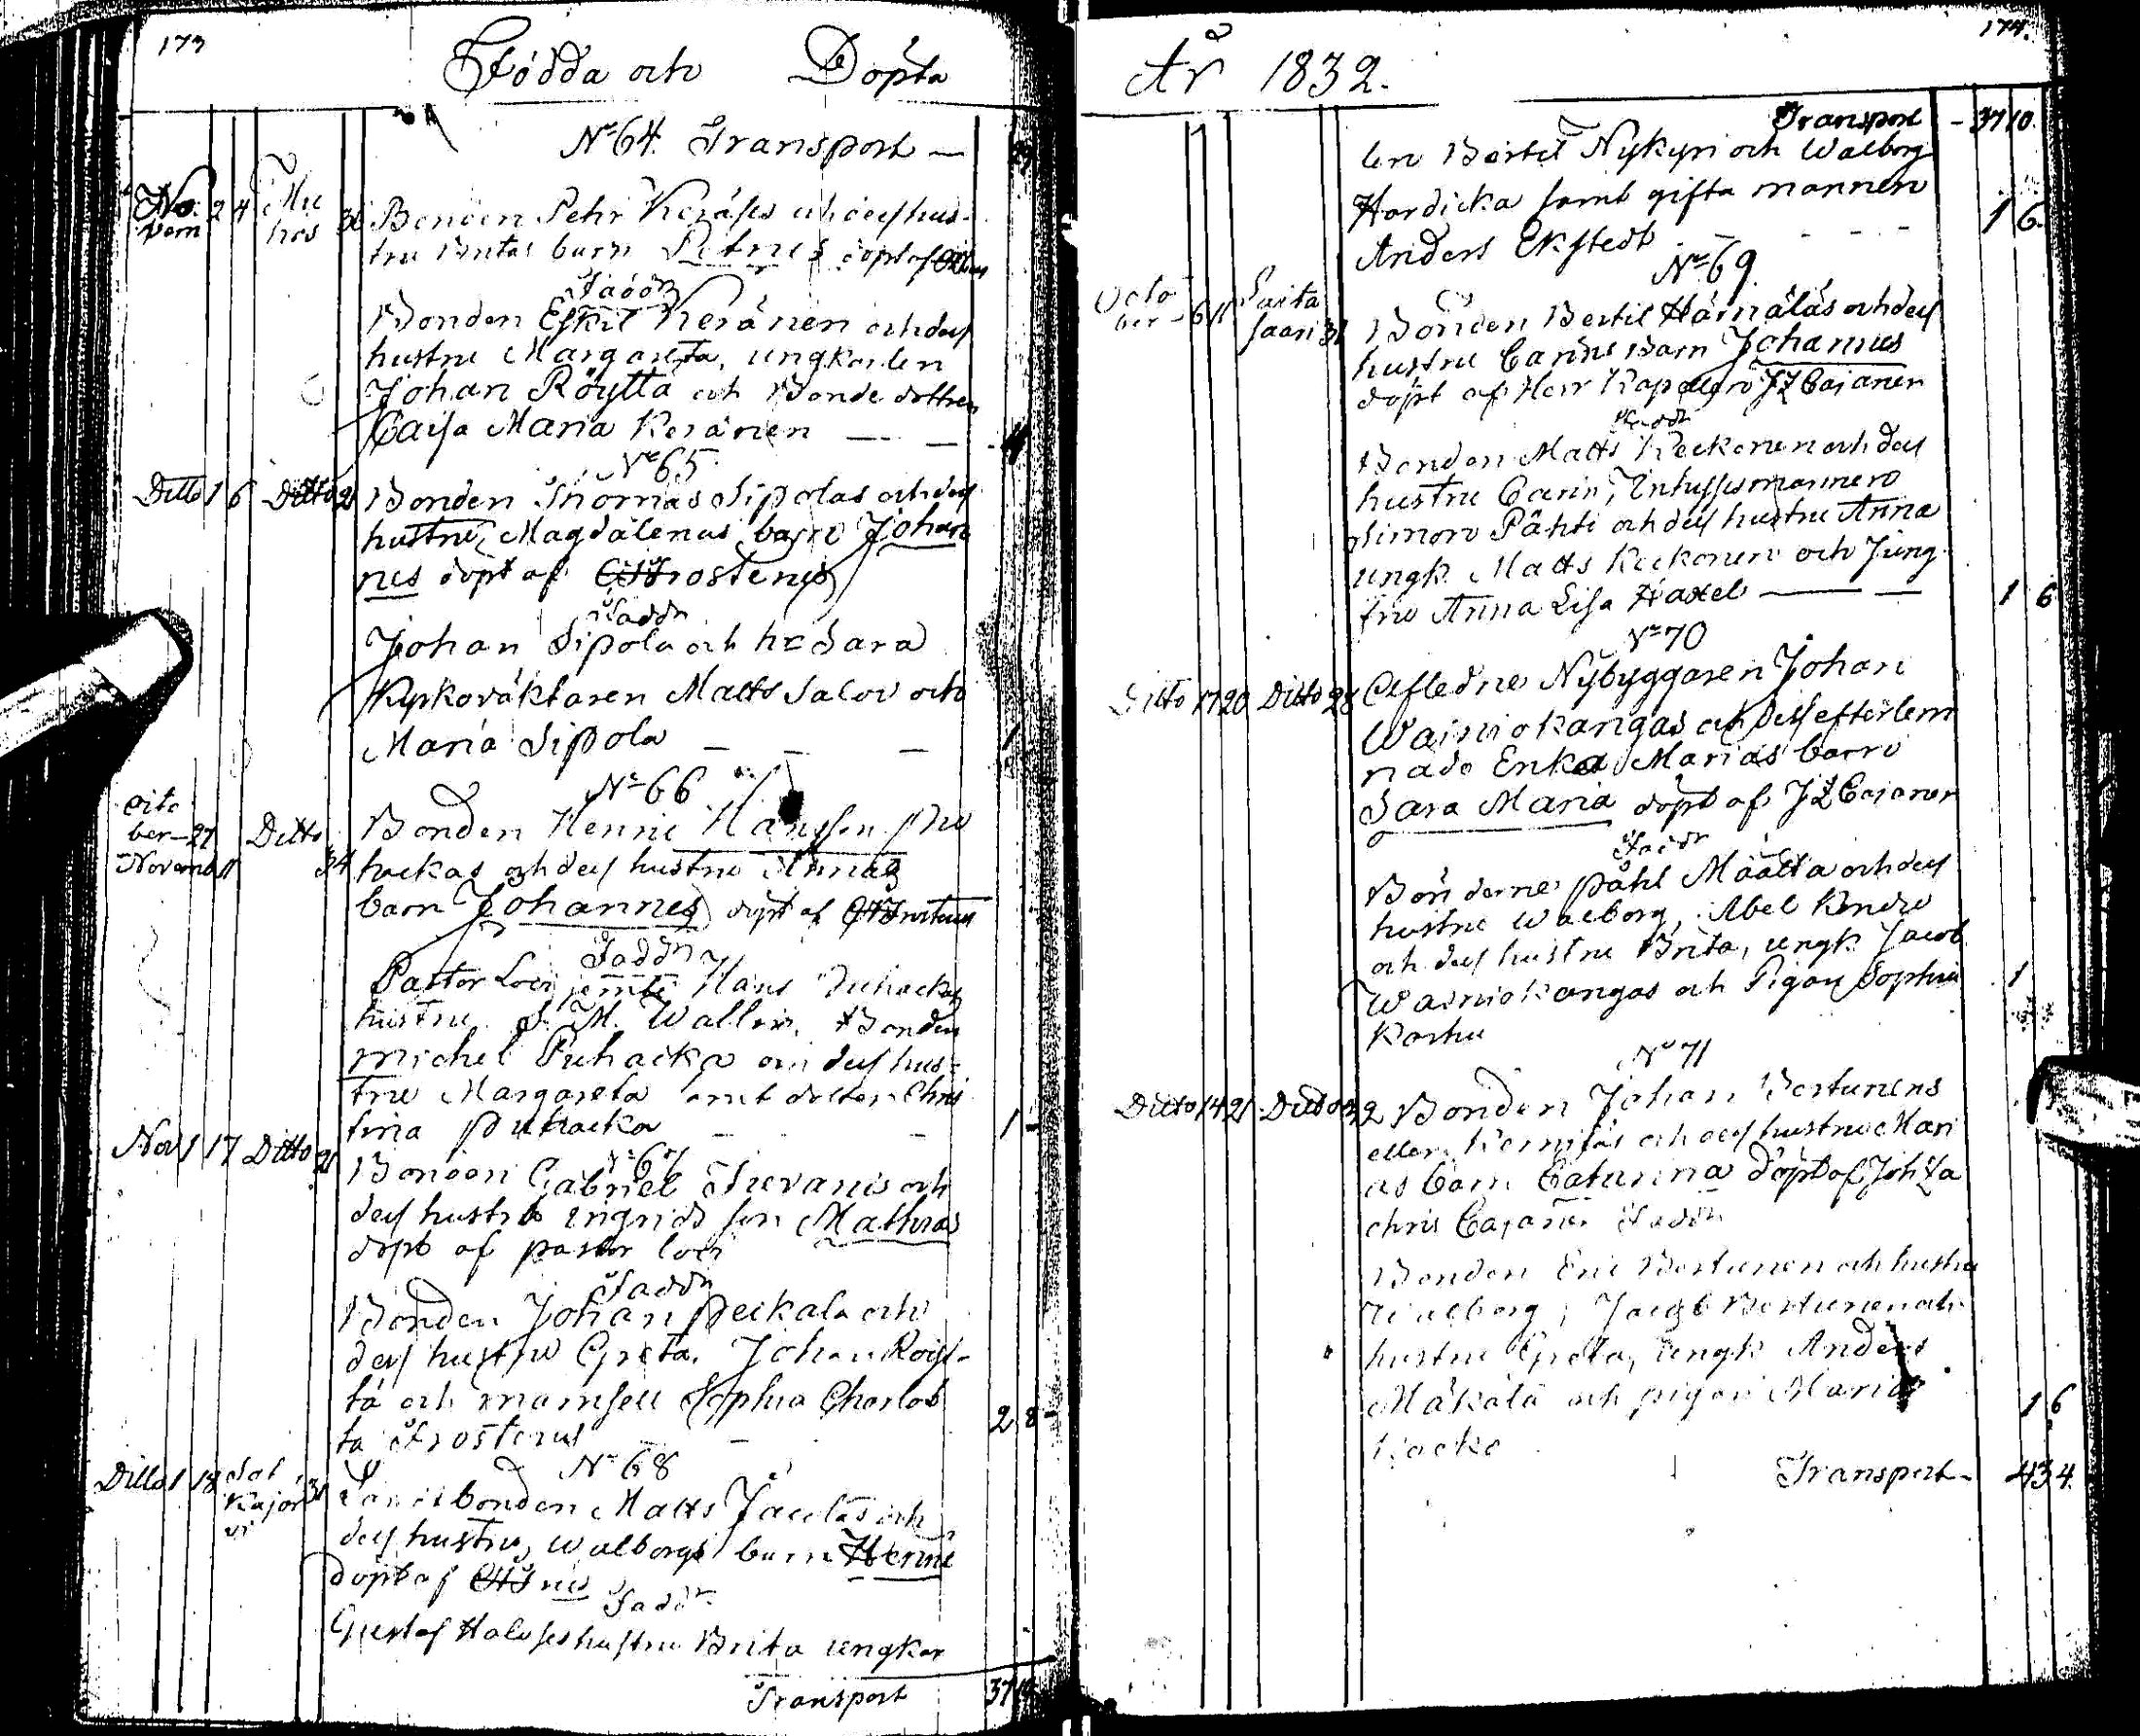 173
Födda och Döpta
No 64. Transport —
Novem 2 4 Mu hos 36 Bonden Pehr Keräses och dess hus-
tru Britas barn Petrus döpt af
Faddr
Bonden Eskil Keränen och dess
hustru Margareta, ungkarlen
Johan Röyttä och Bonde dottren
Caisa Maria Keränen — —
No 65
Ditto 1 6 Ditto 21 Bonden Thomas Sipolas och dess
hustru Magdalenas barn Johan
nes döpt af Frostenus
Faddr
Johan Sipola och hu Sara
Kyrkoväktaren Matts Salov och
Maria Sipola — — — 1
No 66
octo
ber — 27 Ditto Bonden Henric Hansson Pu
Novemb 11 34 hackas och dess hustru Annas
barn Johannes döpt af
Faddr
Pastor Loci jemte Hans Puhackas
hustru S. M. Wallin, Bonden
Michel Puhacka och dess hus-
tru Margareta samt dotter Chris
tina Puhacka — — 1 -
No 67
Nov 1 17 Ditto 21 Bonden Gabriel och
dess hustru Ingrids son Mathias
döpt af pastor loci
Faddr
Bonden Johan Peckala och
dess hustru Greta, Johan Röyt-
tä och mamsell Sophia Charlot
ta Frosterus — 2 8 -
No 68
Ditto 1 18 Sot kajär vi 31 bonden Matts och
dess hustru Walborgs barn Henric
döpt af
Faddr
Gustaf hustru Brita ungkar
Transport 37 10
174.
År 1832.
Transport - 37 10.
len Bertil Nykyri och Walborg
Hardicka samt gifta mannen
Anders Ekstedt — - - - 1 6.
No 69
Octo
ber — 6 11 Saita saari 31 Bonden Bertil Hämäläs och dess
hustru Carins Barn Johannes
döpt af Herr Kapellan JZ Cajanen
Faddr
Bonden Matts Keckonen och dess
hustru Carin, Inhysesmannen
Simon Pähti och dess hustru Anna
ungk. Matts Keckonen och Jung-
fru Anna Lisa Haxel — — 1 6
No 70
Ditto 17 20 Ditto 28 Afledne Nybyggaren Johan
Wainiokangas och dess efterlem
nade Enka Marias barn
Sara Maria döpt af JZ Cajanen
Faddr
Bönderne Påhl Määttä och dess
hustru Walborg, Abel
och dess hustru Brita, ungk Jacob
Wainiokangas och Pigan Sophia 1
Karhu
No 71
Ditto 14 21 Ditto 32 Bonden Johan Bertunens
eller och dess hustru Mari
as barn Catarina döpt af Joh Za
chris Cajanen Faddr
Bonden Eric Bertunen och hustru
Walborg, Jacob Bertunen och
hustru Greta, ungk Anders
Mäkälä och pigan Maria 1 6
Transport — 43 4.